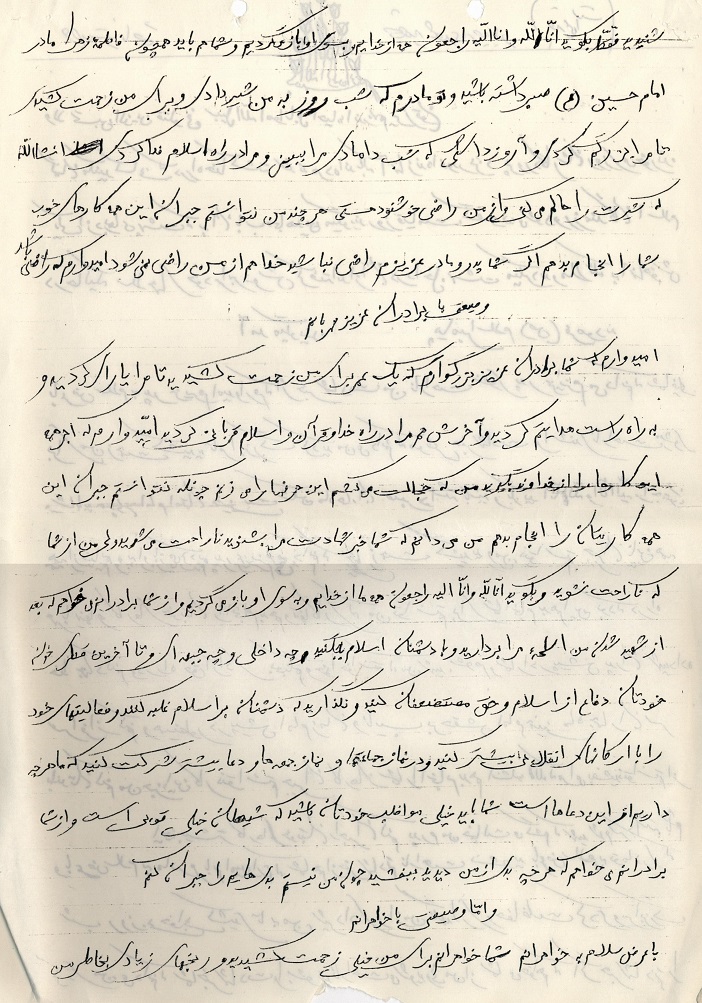 شنیدید فقط بگوئید انّا لِلّه و انا الیه راجعون همه از خدایم و بسوی او باز می‌گردیم و شما هم باید همچون فاطمه زهرا مادر
امام حسین (ع) صبر داشته باشید و تو مادرم که شب روز به من شیر دادی و برای من زحمت کشیدی
تا من را بزرگم کردی و آرزو داشتی که شب دامادی مرا ببینی و مرا در راه اسلام فدا کردی انشاالله
که شیرت را حلالم می‌کنی و از من راضی خوشنود هستی هر چند من نتوانستم جبران این همه کارهای خوب
شما را انجام بدهم اگر شما پدر و مادر عزیزم راضی نباشید خدا هم از من راضی نمی‌شود امیدوارم که راضی باشید
وصیتی با برادران عزیز مهربانم
امیدوارم که شما برادران عزیز بزرگوارم که یک عمر برای من زحمت کشیدید تا مرا یاری کردید و
به راه راست هدایتم کردید و آخرش هم مرا در راه خدا و قرآن و اسلام قربانی کردید امیدوارم که اجر همه
این کارها را از خداوند بگیرید من که خجالت می‌کشم این حرفها را می زنم چونکه نتوانستم جبران این
همه کارهایتان را انجام بدهم من می دانم که شما خبر شهادت مرا بشنوید ناراحت می‌شوید ولی من از شما
که ناراحت نشوید و بگوئید انّا لِلّه و انّا الیه راجعون همه ما از خدایم و بسوی او باز می گردیم و از شما برادرانم می‌خواهم که بعد
از شهید شدن من اسلحه مرا بردارید و با دشمنان اسلام بجنگید چه داخلی و چه جبهه ای و تا آخرین قطره خون
خودتان دفاع از اسلام و حق مستضعفان کنید و نگذارید که دشمنان بر اسلام غلبه کنند و فعالیتهای خود
را با ارگانهای انقلابی بیشتر کنید و در نماز جماعتها و نماز جمعه ها و دعا بیشتر شرکت کنید که ما هر چه
داریم از این دعاها است شما باید خیلی مواظب خودتان باشید که شیطان خیلی قوی است و از شما
برادرانم می خواهم که هر چه بدی از من دیدید ببخشید چون من نیستم بدی هایم را جبران کنم
و اما وصیتی با خواهرانم
با عرض سلام به خواهرانم شما خواهرانم برای من خیلی زحمت کشیدید و رنجهای زیادی بخاطر من